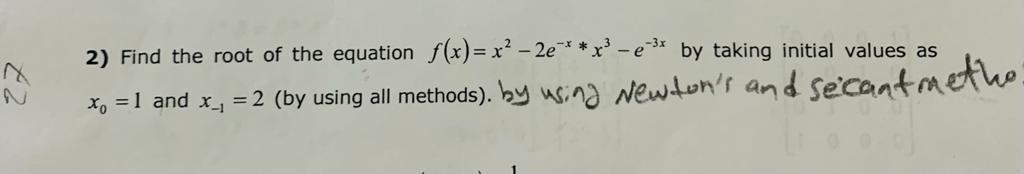 2) Find the root of the equation f(x)= x² – 2e⁻ˣ * x³ – e⁻³ˣ by taking initial values as
x₀ = 1 and x₋₁ = 2 (by using all methods). by using Newton's and secant metho